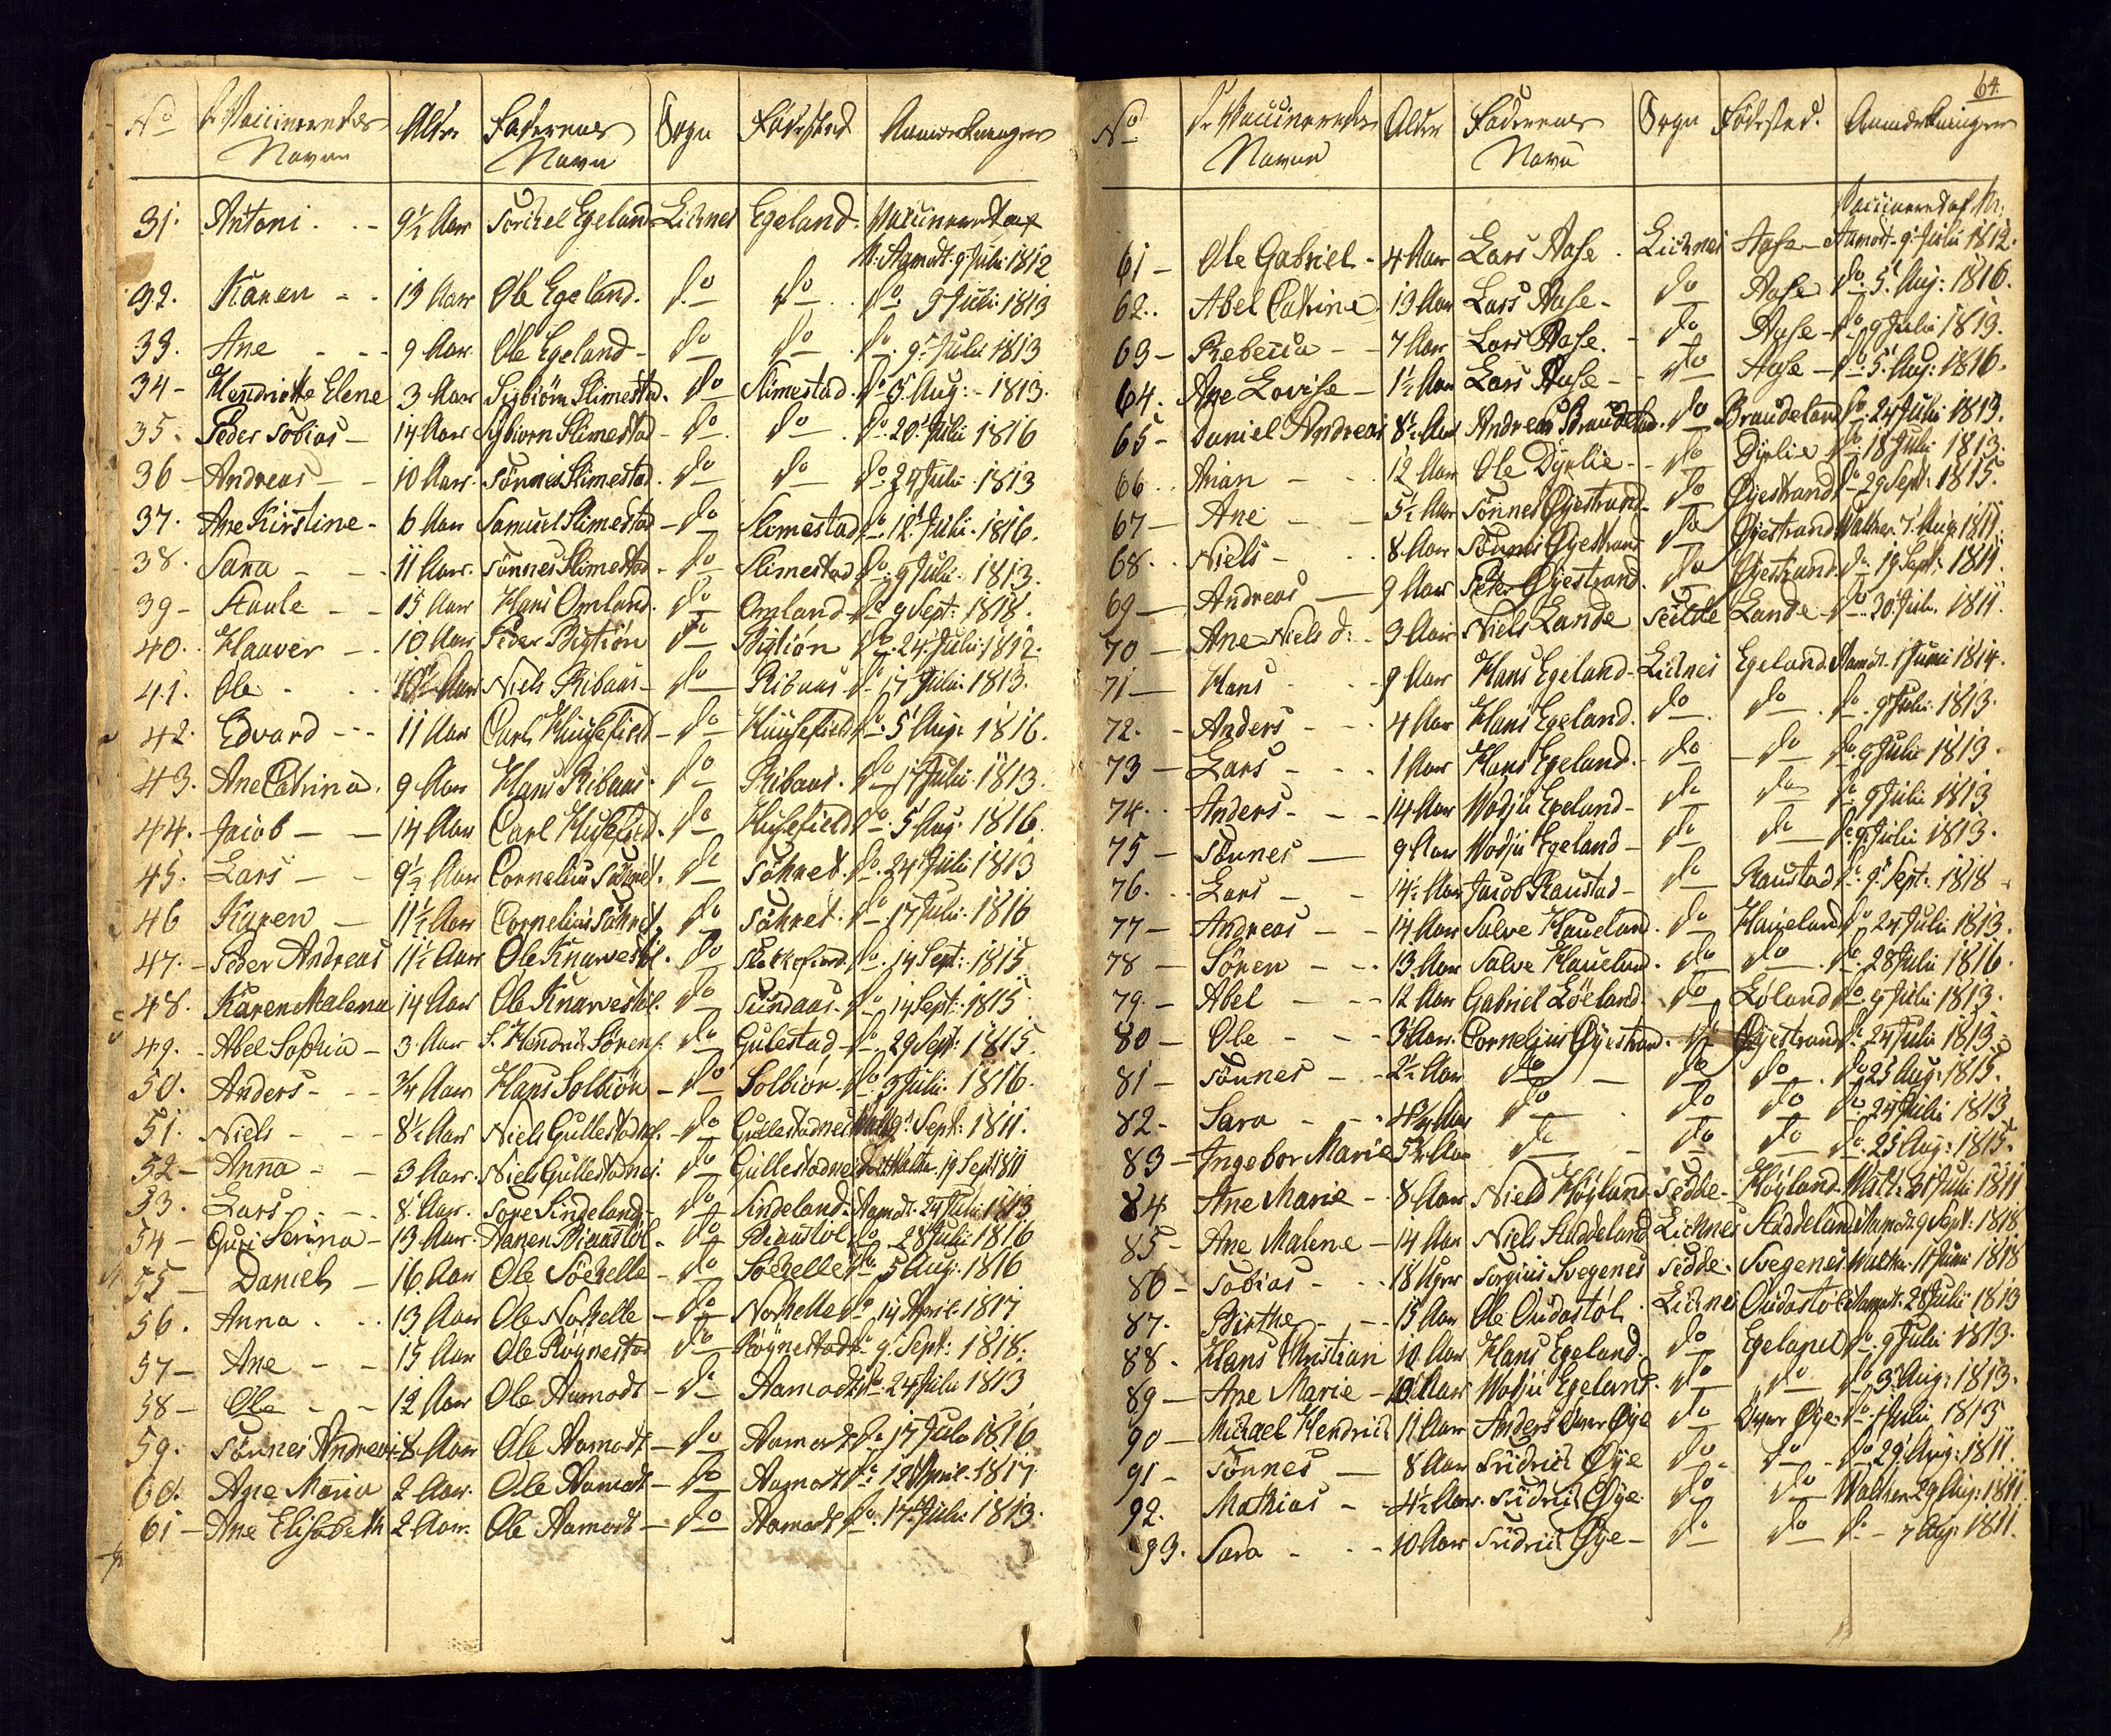 No De Vaccineredes Navne Alder Faderenes Navn Sogn Fødested Anmerkninger
31. Antoni 9½ Aar Torkel Egeland Lichnes Egeland Vaccineret af
N. Aamodt. 9 Juli 1812
32. Karen 13 Aar Ole Egeland. do do do 9 Juli 1813
33. Ane 9 Aar Ole Egeland do do do 9 Julii 1813
34 Hendrictte Elene 3 Aar Sigbiörn Slimestad. do Slimestad. do 5 Aug: 1813.
35. Peder Tobias 14 Aar Sigbiorn Slimestad do do do 20 Julii 1816
36 Andreas 10 Aar Tönnes Slimestad. do do do 24 Julii 1813
37. Ane Kirstine 6 Aar Samuel Slimestad do Slimestad do 12 Julii 1816.
38. Sara 11 Aar. Tönnes Slimestad do Slimestad do 9 Julii 1813.
39 Staale 15 Aar Hans Omland. do Omland do 9 Sept: 1818.
40. Haaver 10 Aar Peder Rigtiön do Rigtion do 24 Julii 1812.
41. Ole Aar Niels Ribaas do Ribaas do 17 Julii 1813.
42. Edvard 11 Aar Carl Huusefield do Huusefield do 5 Aug: 1816.
43. Ane Catrina. 9 Aar Hans Ribaas. do Ribaas. do 17 Julii 1813.
44. Jacob 14 Aar Carl Husefield. do Husefield do 5 Aug: 1816.
45. Lars 9½ Aar Cornelius do do 24 Julii 1813
46 Karen 11½ Aar Cornelius do do 17 Julii 1816
47. Peder Andreas 11½ Aar Ole Knarvestöl. do do 14 Sept: 1815
48. Karen Malena 14 Aar Ole Knarvestöl. do do 14 Sept: 1815
49. Abel Sophia 3 Aar S. Hendrich Sörens. do Gulestad do 29 Sept: 1815.
50. Anders ¾ Aar Hans Solbiön do Solbion do 9 Julii 1816.
51. Niels 8½ Aar Niels Gullestadnes. do Gullestadnes Sept: 1811.
52 Anna 3 Aar. Niels Gullestadnes. do Gullestadnes 19 Sept 1811
53. Lars 8 Aar. Tore Sindeland do Sindeland. Aamdt. 24 Julii 1813
54 Guri Serina 13 Aar. do do 28 Julii 1816
55 Daniel 16. Aar Ole do do 5 Aug: 1816
56. Anna 13 Aar Ole Norhelle do Norhelle do 14 April 1817
57 Ane 15 Aar Ole Röynestad do Röynestad do 9 Sept: 1818.
58 Ole 12 Aar Ole Aamodt do Aamodt do 24 Julii 1813
59. Tönnes Andreas 8 Aar Ole Aamodt do Aamodt do 17 Juli 1816
60. Ane Maria 2 Aar. Ole Aamodt do Aamodt do 12 April 1817
61 Ane Elisabeth 2 Aar. Ole Aamodt do Aamodt do 17 Julii 1813.
64.
No De Vaccineredes Navne Alder Faderenes Navn Sogn Fødested. Anmerkninger
Vaccineret af N.
61 Ole Gabriel 4 Aar Lars Aase Lichnes Aase Aamodt 9 Julii 1812.
62. Abel Catrine 13 Aar Lars Aase do Aase do 5 Aug: 1816.
63 Rebecca 7 Aar Lars Aase. do Aase do 9 Julii 1813.
64. Ane Lovise 1½ Aar Lars Aase do Aase do 5 Aug: 1816.
65 Daniel Andreas 8½ Aar Andreas Braudeland. do Braudeland do 24 Julii 1813.
66. Arian 12 Aar Ole Dyrlie do Dyrlie do 18 Julii 1813.
67 Ane 5½ Aar Tönnes Øyestrand do Øyestrand do 29 Sept: 1815.
68. Niels 8 Aar Tönnes Øyestrand do Øyestrand Walther. 7 Aug 1811.
69 Andreas 9 Aar Peter Øyestrand. do Øyestrand. do 19 Sept: 1811.
70 Ane Niels d: 3 Aar Niels Lande Lande do 30 Juli. 1811.
71 Hans 9 Aar Hans Egeland Lichnes Egeland. Aamdt. 1 Junii 1814.
72. Anders 4 Aar Hans Egeland. do do do 9 Julii 1813.
73 Lars 1 Aar Hans Egeland. do do do 9 Julii 1813
74. Anders 14 Aar Egeland do do do 9 Julii 1813
75 Tönnes 9 Aar Egeland do do do 9 Julii 1813.
76. Lars 14½ Aar Jacob Raustad do Raustad do 9 Sept: 1818
77 Andreas 14 Aar Salve Haueland. do Haueland do 24 Julii 1813.
78 Sören 13 Aar Salve Haueland. do do do 28 Julii 1816.
79. Abel 12 Aar Gabriel Löland. do Löland do 9 Julii 1813.
80 Ole 3 Aar. Cornelius Øyestrand. do Øyestrand do 24 Julii 1813.
81 Tönnes 2½ Aar do do do do 25 Aug: 1815.
82. Sara Aar do do do do 24 Julii 1813
83 Ingebor Marie Aar do do do do 25 Aug: 1815.
84 Ane Marie 8 Aar Niels Höyland Höyland Walt: 31 Julii 1811
85 Ane Malene 14 Aar Niels Staddeland Lichnes Staddeland Aamodt 9 Sept: 1818
86 Tobias 18 Aar Torgius Svegenes Svegenes Walther 11 Junii 1818
87. Birthe 15 Aar Ole Oudastöl. Lichnes Oudastöl Aamdt. 28 Julii 1813
88. Hans Christian 10 Aar Hans Egeland. do Egeland do 9 Julii 1813.
89 Ane Marie Aar Egeland. do do do 3 Aug: 1813.
90 Michael Hendrich 11 Aar Anders Over Øye do Over Øye do 1 Julii 1813
91 Tönnes 8 Aar Fridrich Øye do do do 29 Aug: 1811.
92. Mathias 4½ Aar. Fridrich Øye do do Walther 29 Aug: 1811
93. Sara 10 Aar Fridrich Øye do do do 7 Aug: 1811.